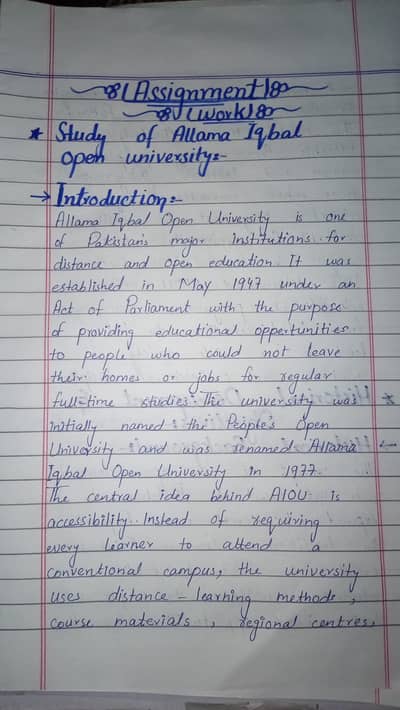 Assignment
(Work)
* Study of Allama Iqbal
Open university:-
→ Introduction:-
Allama Iqbal Open University is one
of Pakistan's major institutions for
distance and open education. It was
established in May 1947 under an
Act of Parliament with the purpose
of providing educational oppertunities
to people who could not leave
their homes or jobs for regular
full-time studies. The university was
initially named the People's Open
University and was renamed Allama
Iqbal Open University in 1977.
The central idea behind AIOU is
accessibility. Instead of requiring
every learner to attend a
conventional campus, the university
uses distance-learning methods,
course materials, regional centres,